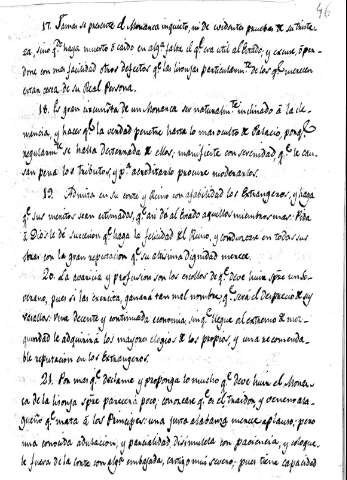 46
17. Jamas se presente el Monarca inquieto, ni de evidentes pruebas de su triste
za, sino qe. haya muerto ó caido en algn. falta el qe. era util al Estado, y escuse, ó per
done con mas facilidad otros defectos qe. las lisonjas particularmte. de los qe. merecen
estar cerca de su Real Persona.
18. Es gran circunstan. de un Monarca ser naturalmte. inclinado á la cle
mencia, y hacer qe. la verdad penetre hasta lo mas oculto de Palacio, porqe.
regularmte. se halla desterrada de ellos; manifieste con serenidad qe. le cau
san pena los tributos, y pa. acreditarlo procure moderarlos.
19. Admita en su corte y Reino con afabilidad los Extrangeros, y haga
qe. sus meritos sean estimados, qe. asi dá al Estado aquellos miembros mas. Pida
á Dios le dé succesion qe. haga la felicidad del Reino, y conduzcase en todas sus
obras con la gran reputacion qe. su altisima dignidad merece.
20. La avaricia y profusion son los escollos de qe. deve huir spre. un So-
verano, pues si las exercita, ganará tan mal nombre, qe. será el desprecio de sus
Vasallos: Una decente y continuada economia, sin qe. llegue al extremo de mez
quindad le adquirirá los mayores elogios de los propios, y una recomenda-
ble reputacion en los Extrangeros.
21. Por mas qe. declame y proponga lo mucho qe. deve huir el Monar
ca de la lisonja spre. pareceria poco; conozcase qe. es el traidor, y veneno ala-
gueño qe. mata á los Principes: una justa alabanza merece aplauso; pero
una conocida adulacion, y parcialidad disimulela con paciencia, y coloque
le fuera de la Corte con algn. embajada, castigo mui severo; pues tiene capacidad